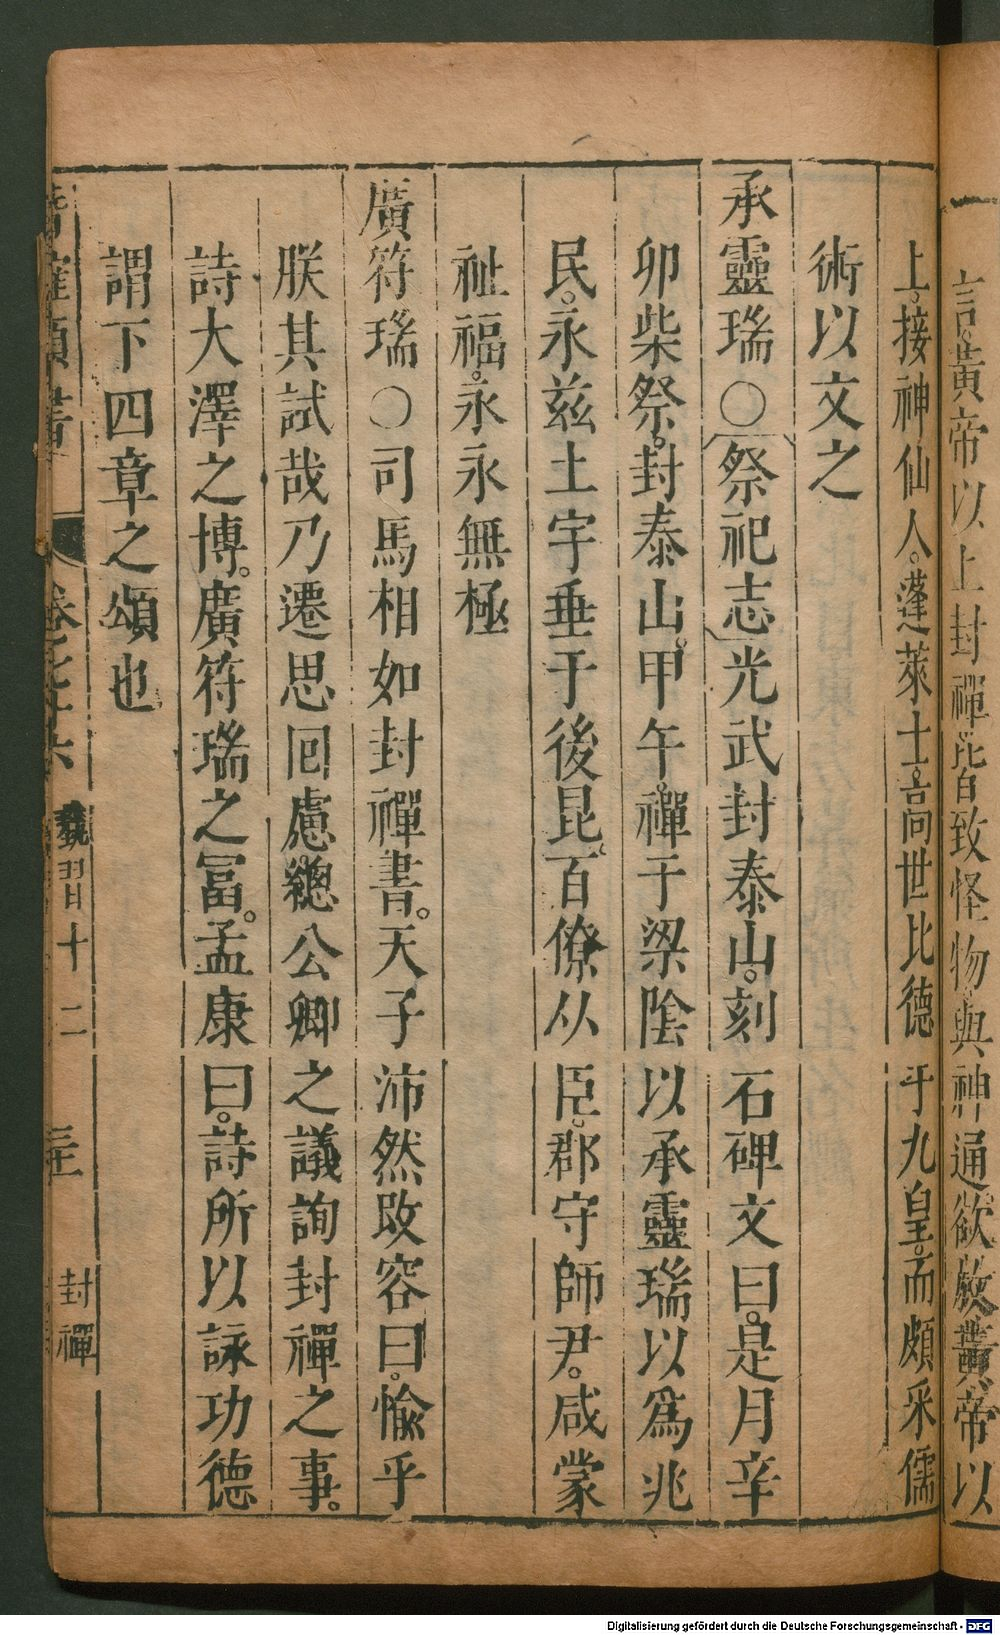 言。黃帝以上封禪。皆致怪物與神通。欲放黃帝以
上。接神仙人。蓬萊士。高向世比德于九皇。而頗采儒
術以文之
承靈瑞○祭祀志光武封泰山。刻石碑文曰。是月辛
卯柴祭。封泰山。甲午。禪于梁陰以承靈瑞以爲兆
民。永兹土宇垂于後昆。百僚从臣。郡守師尹。咸蒙
祉福。永永無極
廣符瑞○司馬相如封禪書。天子沛然改容曰。愉乎
朕其試哉乃遷思回慮總公卿之議詢封禪之事。
詩大澤之博。廣符瑞之冨。孟康曰。詩所以詠功德
謂下四章之頌也
類書
卷之
六
習十二
封禪
Digitalisierung gefördert durch die Deutsche Forschungsgemeinschaft - DFG